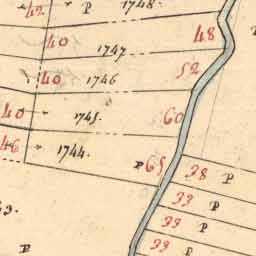 42 P 1748.
40 1747 48
40 1746 52
40 1745. 60
46 1744. P 65
38 P
33 P
33 P
33 P
P